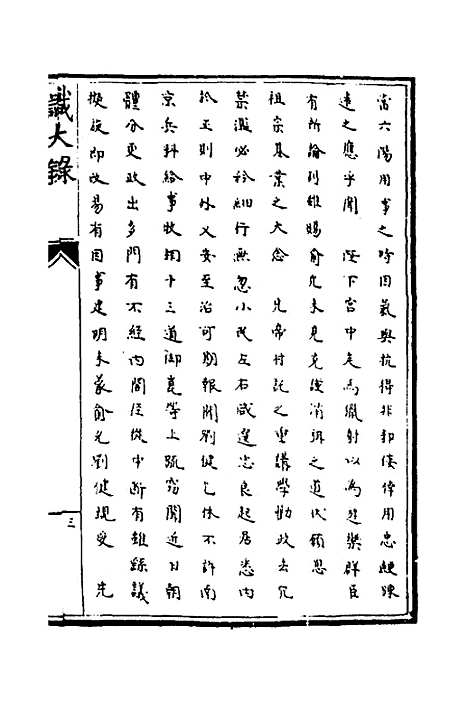 當六陽用事之時因氣與抗得非抑倿倖用忠鯁疎
遠之應乎聞　陛下宮中走馬獵射以為遊樂群臣
有所論列雖賜俞允未見克復消弭之道伏願思
祖宗基業之大念　先帝付託之重講學勤政去冗
禁濫必矜細行無忽小民左右咸選忠良起居悉內
於正則中外乂安至治可期報聞劉健乞休不許南
京兵科給事牧相十三道御
等上疏竊聞近日朝
體分更政出多門有不經內閣徑從中斷有雖辞議
擬旋即改易有因事建明未蒙俞允劉健親受　先
識大錄
三